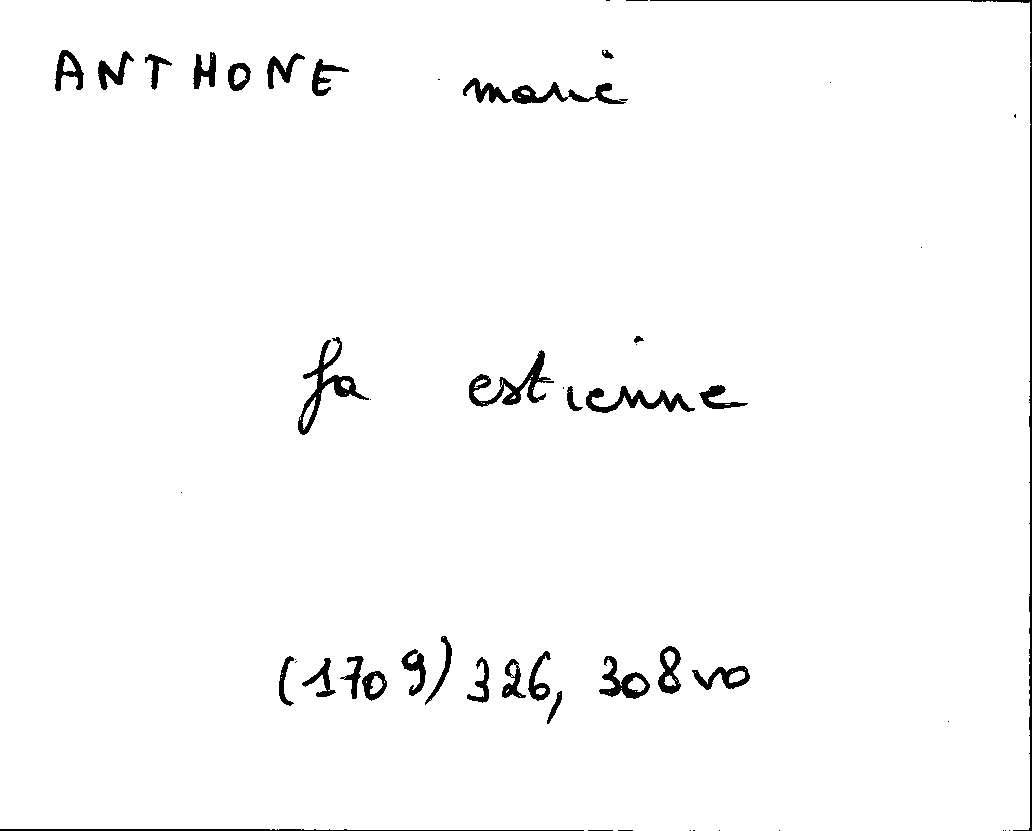 ANTHONE marie
fa estienne
(1709) 326, 308vo